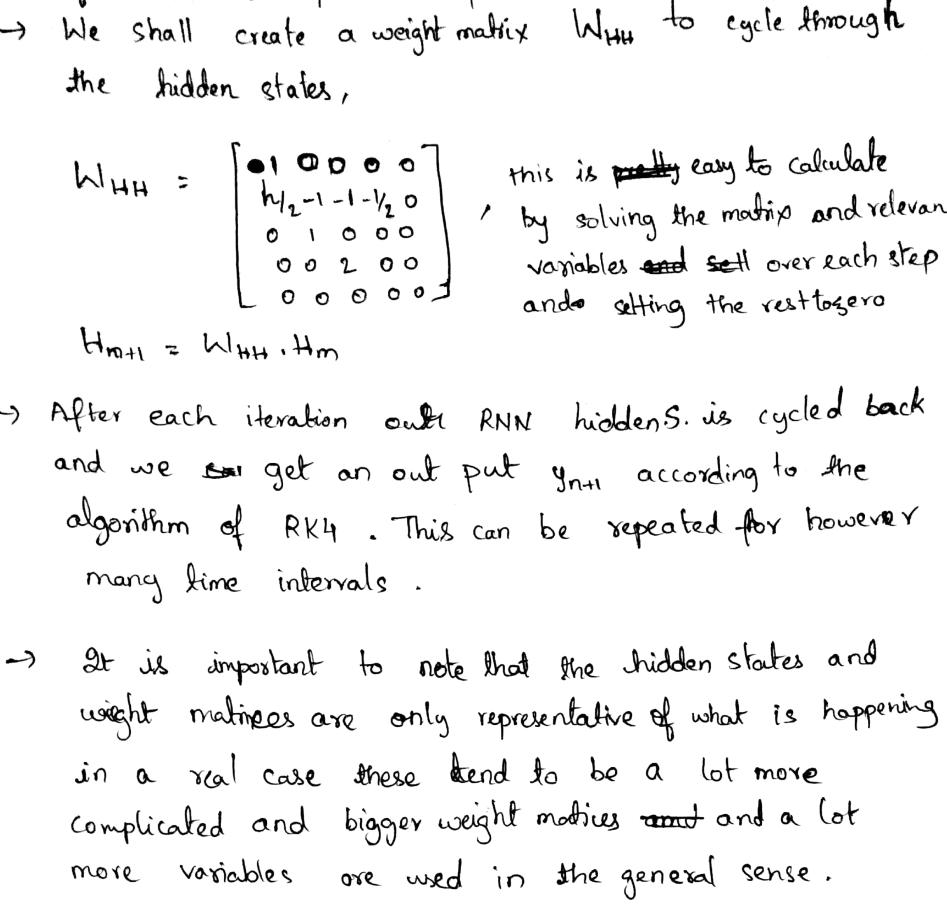 → We shall create a weight matrix W_HH to cycle through
the hidden states,
W_HH = [ 1 0 0 0 0
h/2 -1 -1 -1/2 0
0 1 0 0 0
0 0 2 0 0
0 0 0 0 0 ]
, this is easy to calculate
by solving the matrix and relevan
variables over each step
and setting the rest to zero
H_m+1 = W_HH . H_m
→ After each iteration our RNN hidden S. is cycled back
and we get an out put y_n+1 according to the
algorithm of RK4 . This can be repeated for however
many time intervals .
→ It is important to note that the hidden states and
weight matrices are only representative of what is happening
in a real case these tend to be a lot more
complicated and bigger weight matrices and a lot
more variables are used in the general sense .